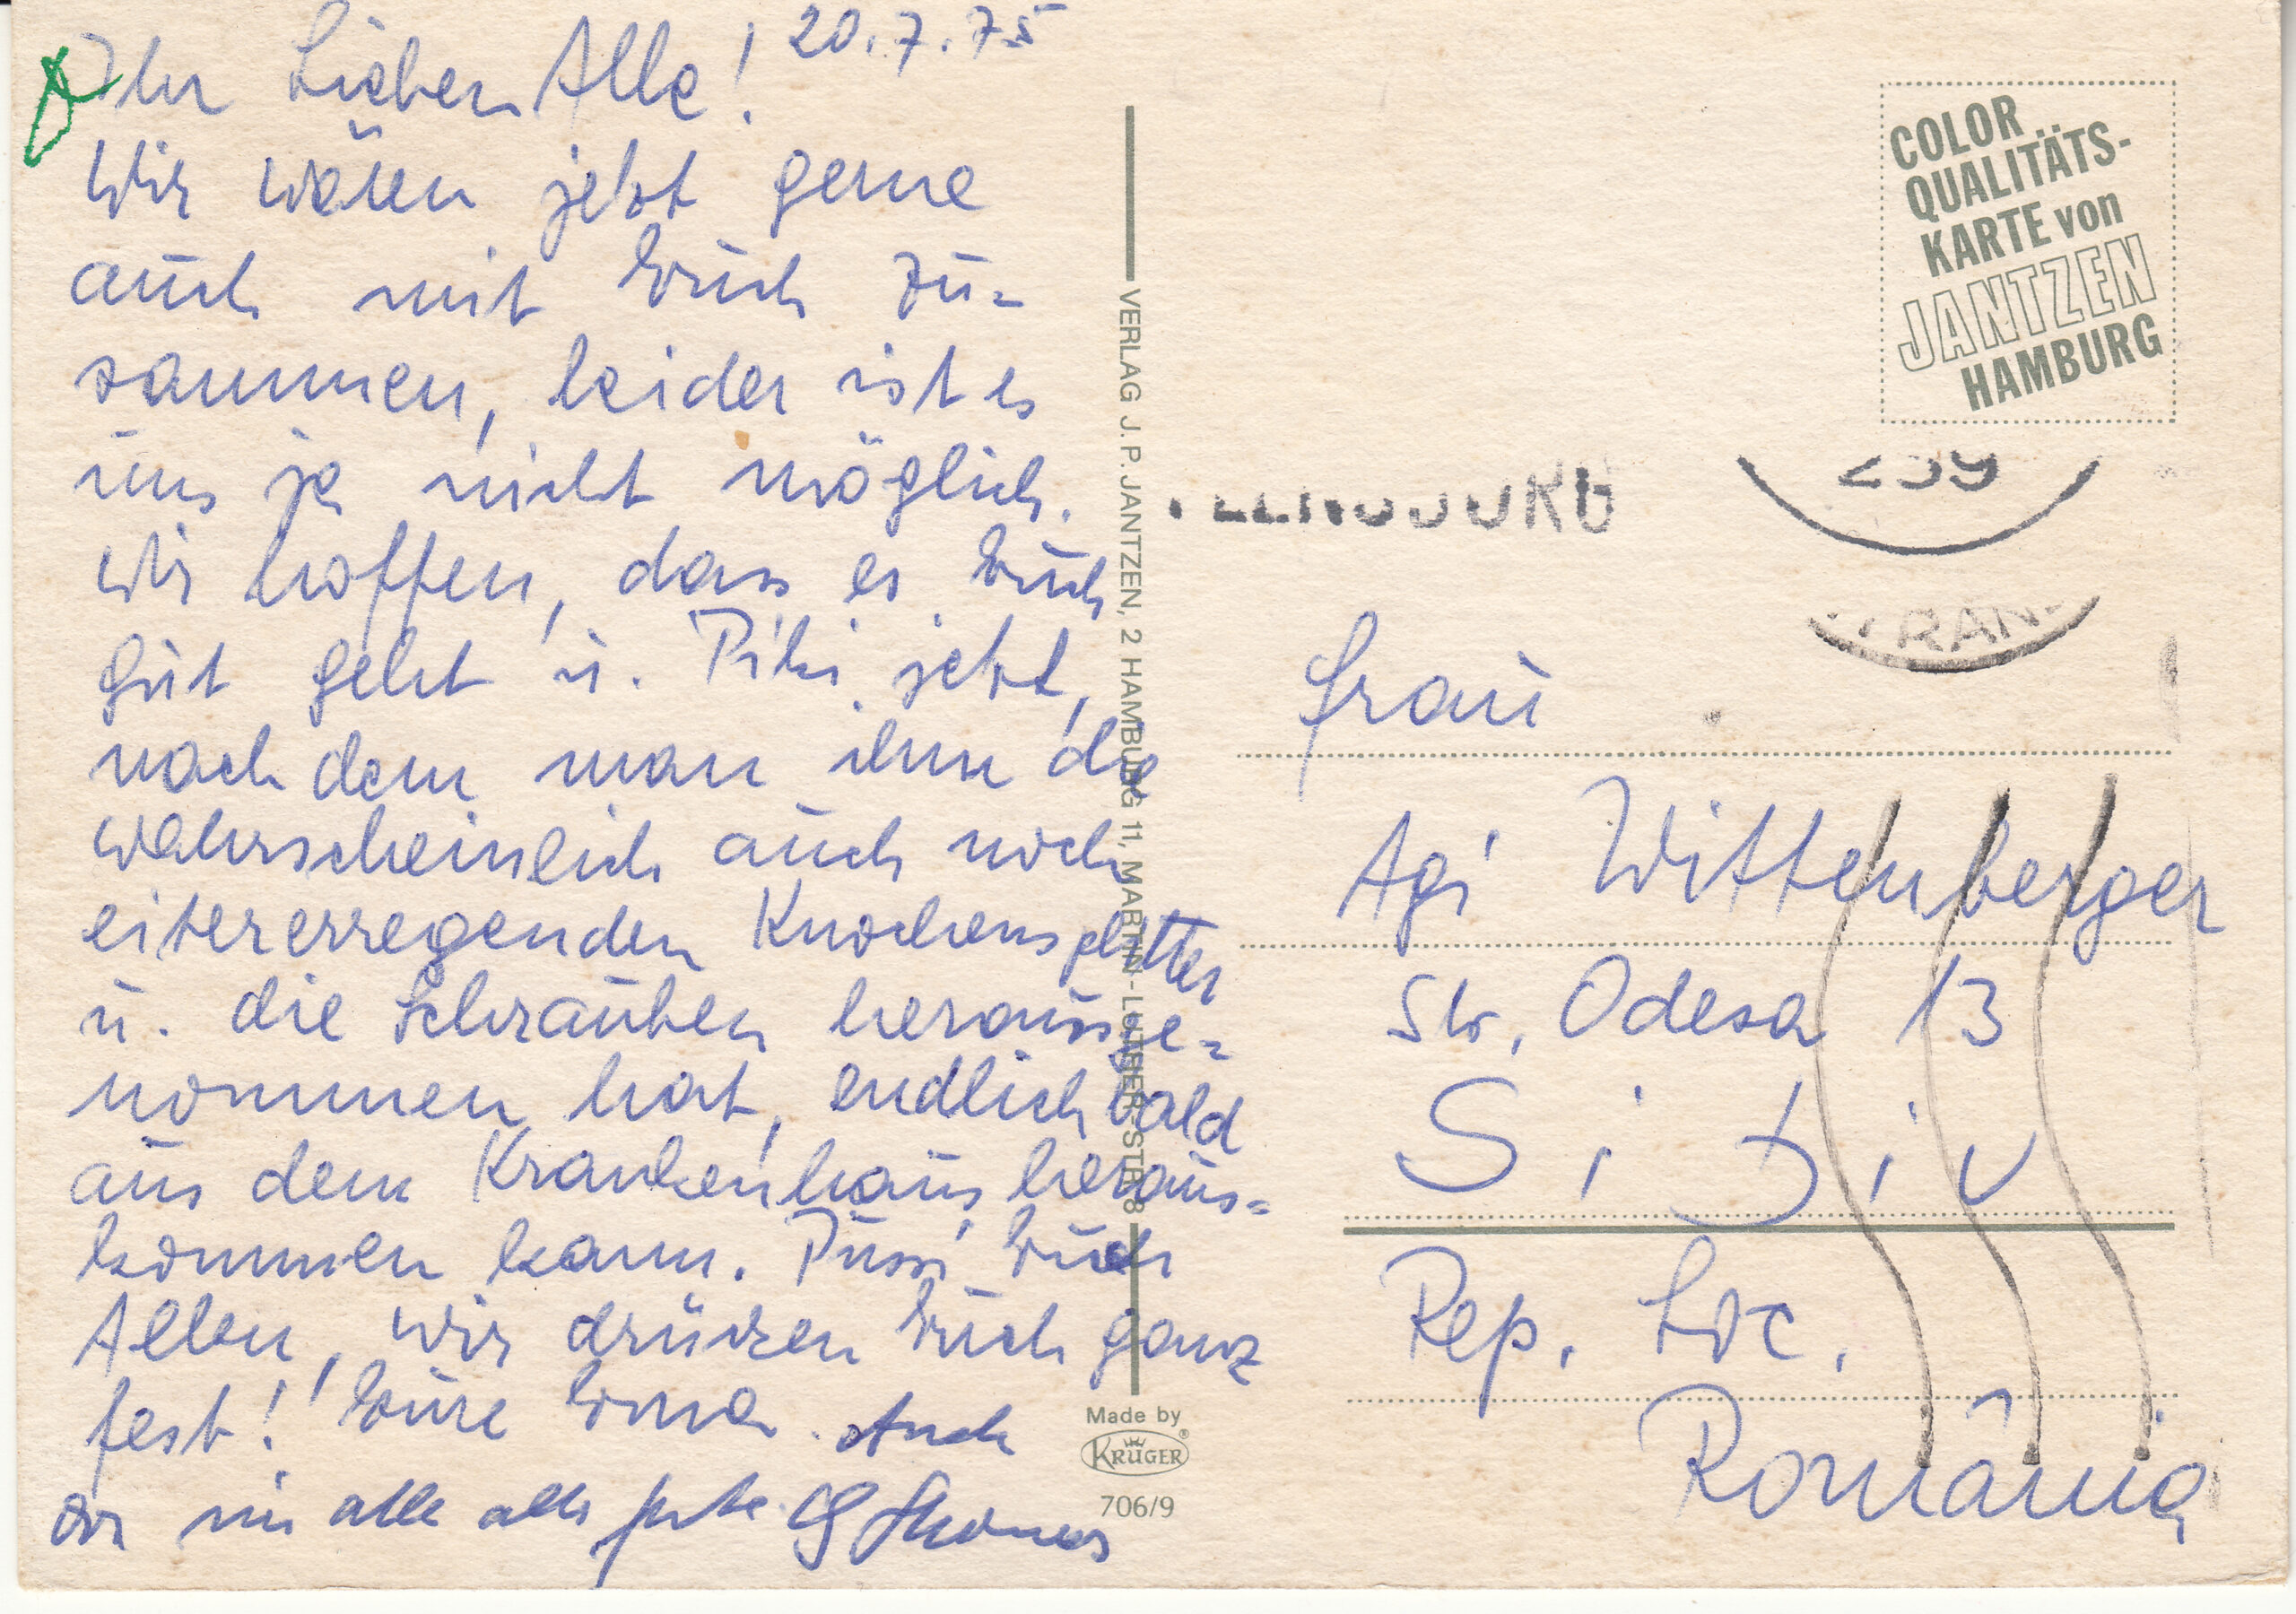 20.7.75
Ihr Lieben Alle!
Wir wären jetzt gerne
auch mit Euch zu-
sammen, leider ist es
uns ja nicht möglich.
Wir hoffen, dass es Euch
gut geht u. Piki jetzt,
nach dem man ihm die
wahrscheinlich auch noch
eitererregenden Knochensplitter
u. die Schrauben herausge-
nommen hat, endlich bald
aus dem Krankenhaus heraus-
kommen kann. Pussi Euch
Allen, wir drücken Euch ganz
fest! Eure Oma. Auch
alle alles gute. Thomas
VERLAG J. P. JANTZEN, 2 HAMBURG 11, MARTIN-LUTHER-STR. 8
Made by
KRÜGER®
706/9
COLOR
QUALITÄTS-
KARTE von
JANTZEN
HAMBURG
239
Frau
Agi Wittenberger
Str. Odesa 13
Sibiu
Rep. Soc.
România